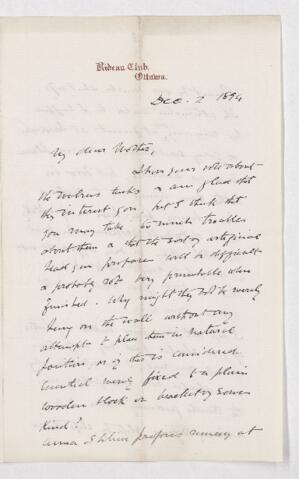 Rideau Club,
Ottawa.
Dec. 2 1894
My dear
I have your note about
the Walrus tusks & am glad that
they interest you, but I think that
you may take too much trouble
about them & that the sort of artificial
head you propose will be difficult
& probably not very presentable when
finished. Why might they not be merely
hung on the wall without any
attempt to place them in natural
position, or if this is considered
essential merely fixed to a plain
wooden block or bracket of some
kind?
at